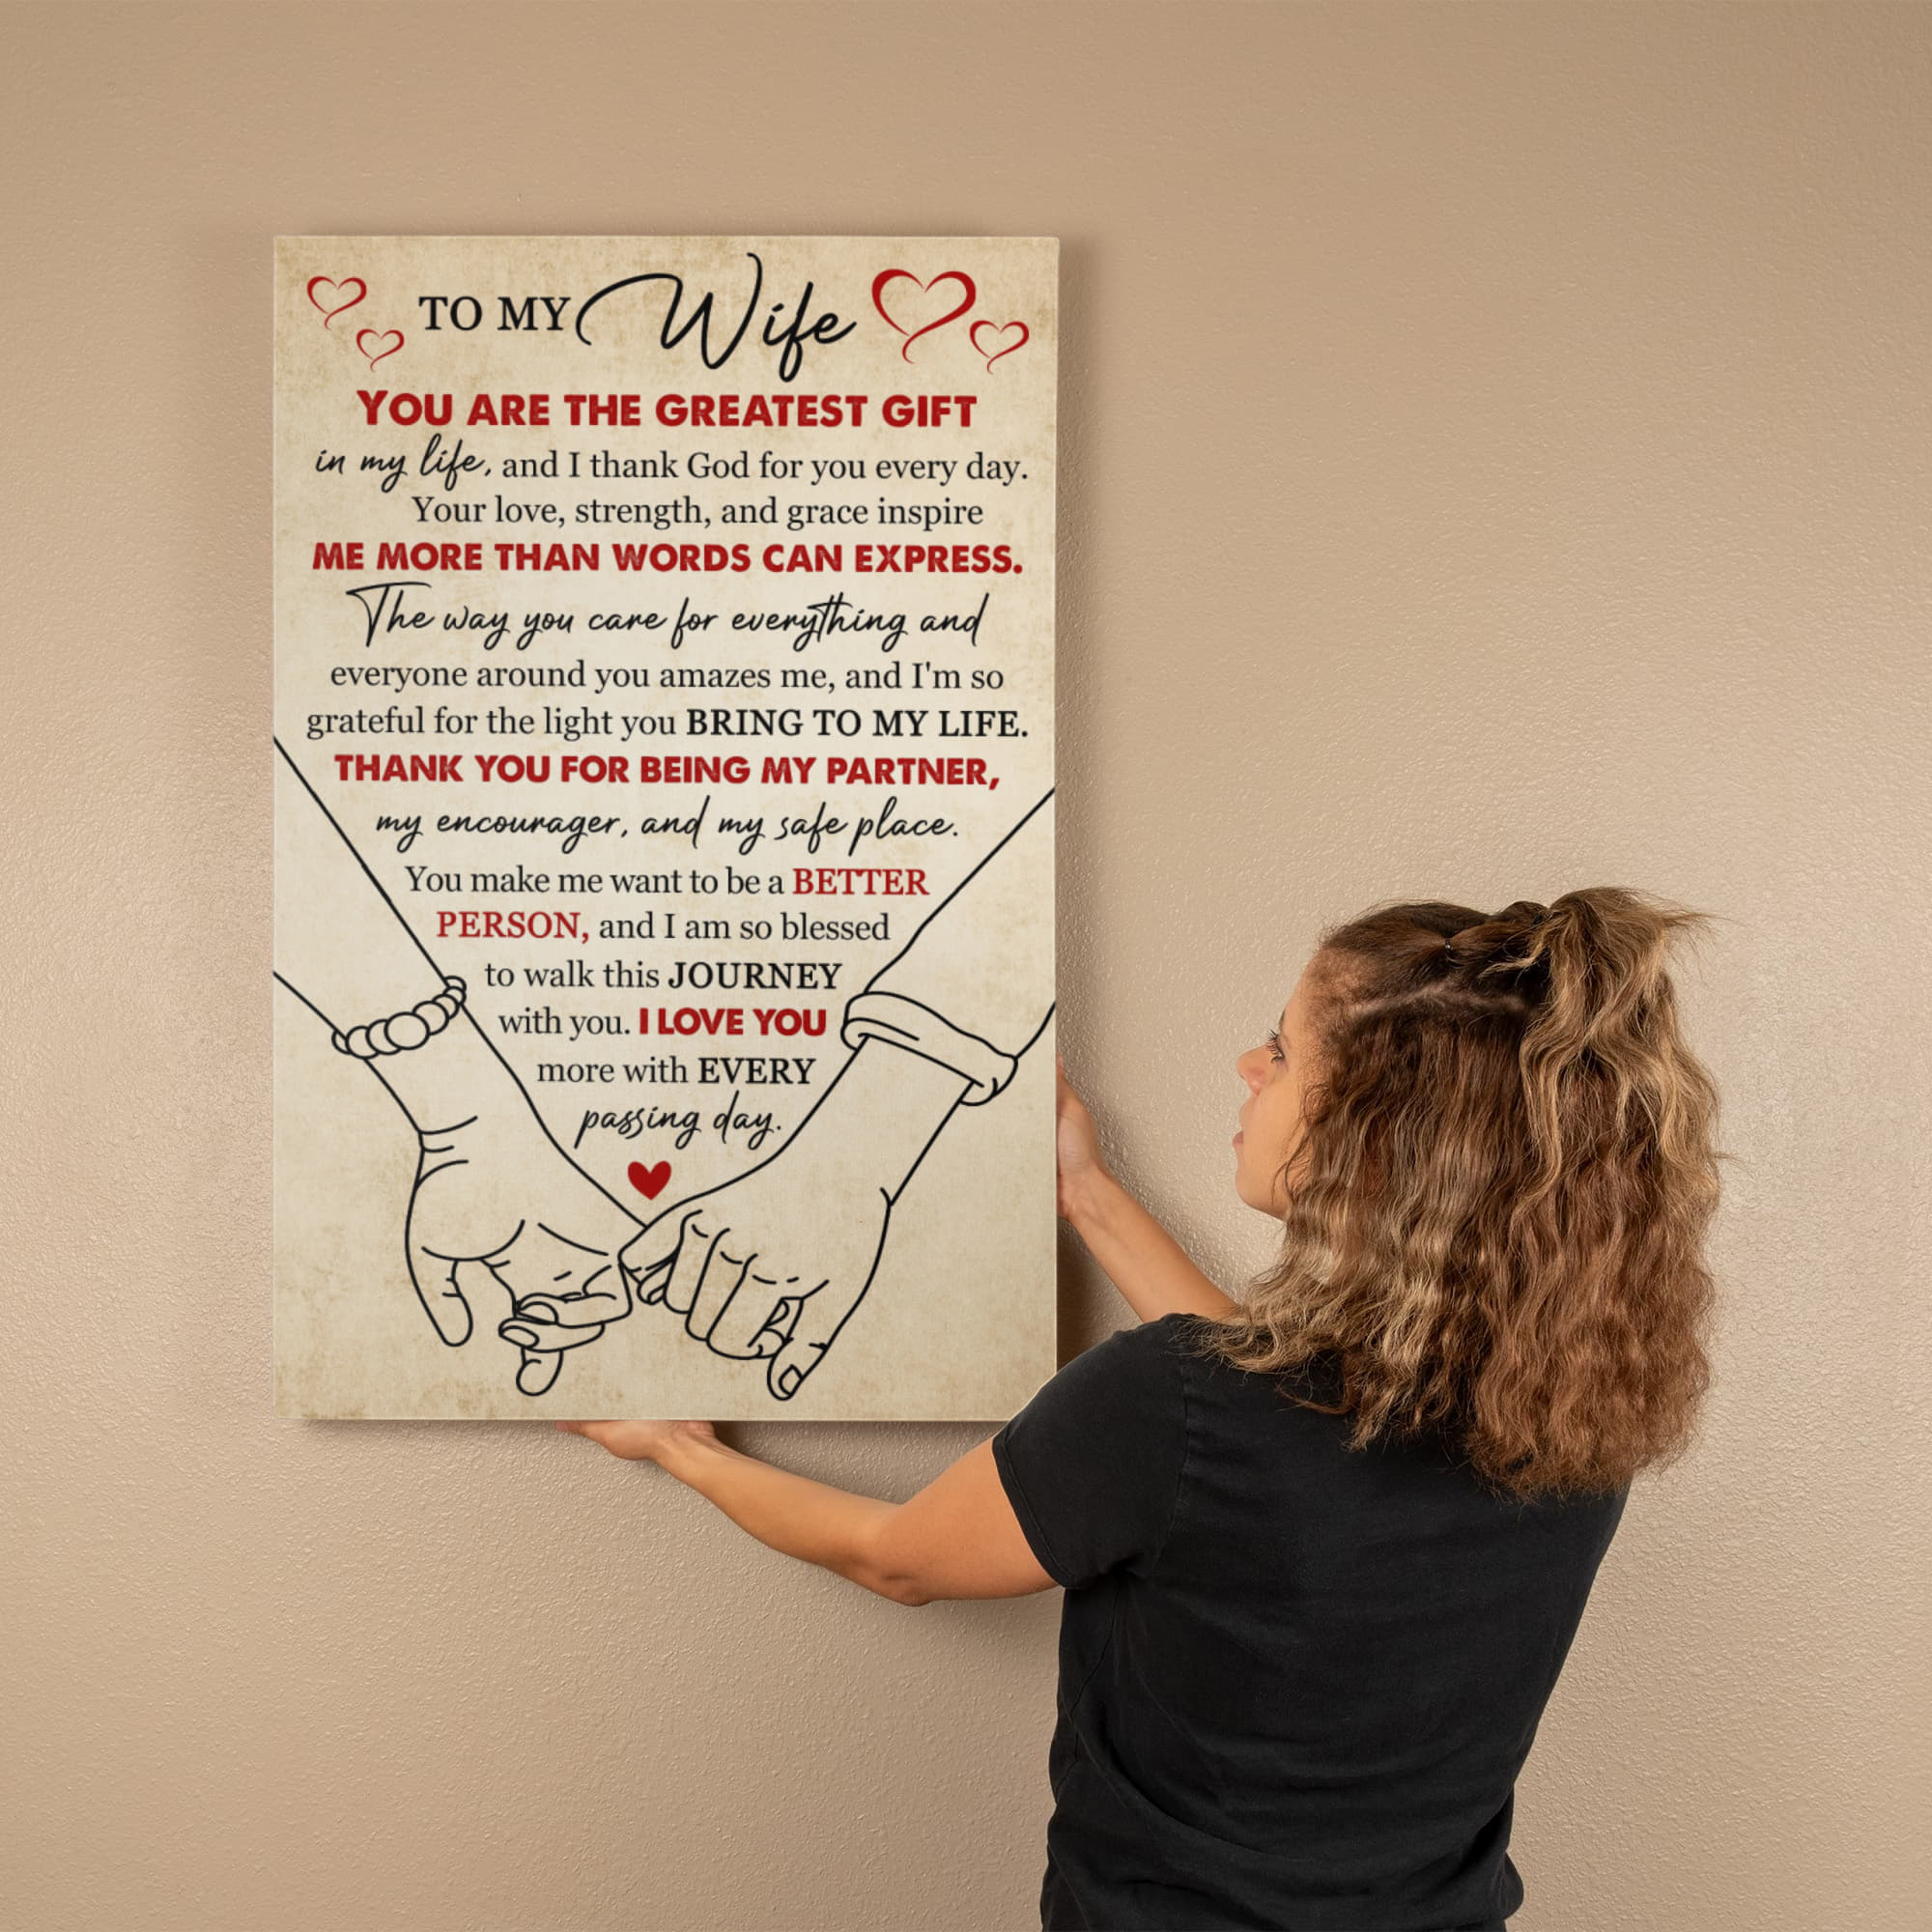 TO MY Wife
YOU ARE THE GREATEST GIFT
in my life, and I thank God for you every day.
Your love, strength, and grace inspire
ME MORE THAN WORDS CAN EXPRESS.
The way you care for everything and
everyone around you amazes me, and I'm so
grateful for the light you BRING TO MY LIFE.
THANK YOU FOR BEING MY PARTNER,
my encourager, and my safe place.
You make me want to be a BETTER
PERSON, and I am so blessed
to walk this JOURNEY
with you. I LOVE YOU
more with EVERY
passing day.